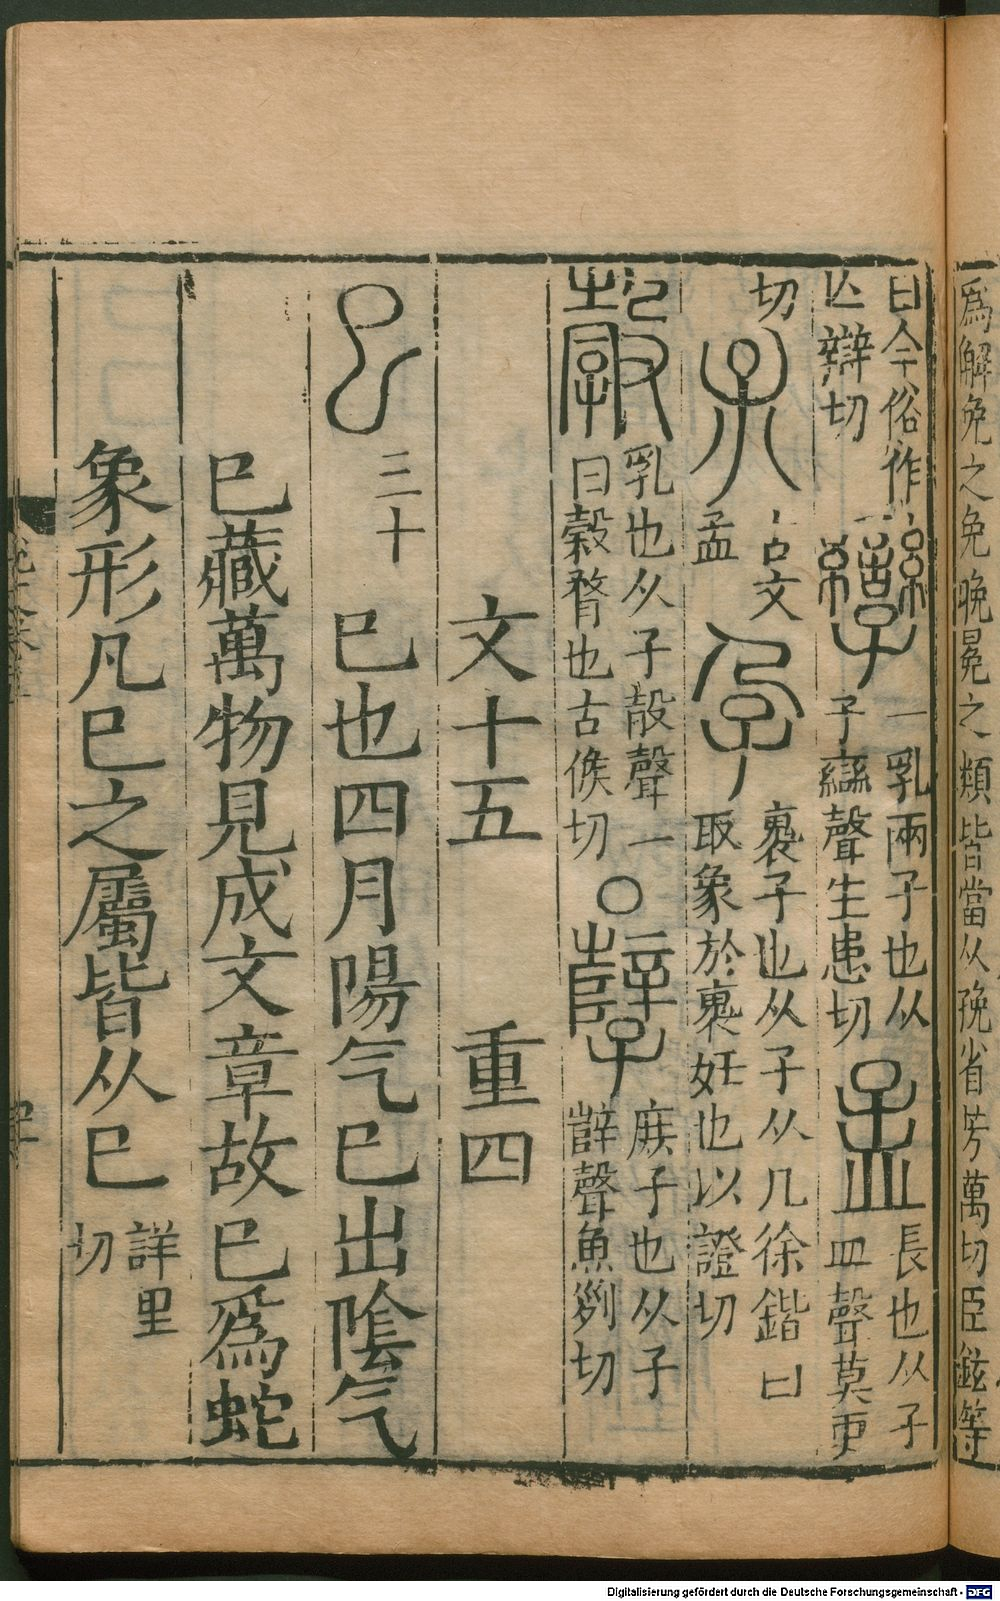 爲解免之免晚冕之類皆當从㝃省芳萬切臣鉉等
曰今俗作
亾辯切
孿
一乳兩子也从
子䜌聲生患切
孟
長也从子
皿聲莫更
切
古文
孟
孕
褢子也从子从几徐鍇曰
取象於褢妊也以證切
乳也从子㱿聲一
曰穀瞀也古候切
○
庶子也从子
辥聲魚列切
文十五 重四
三十
巳也四月陽气巳出陰气
巳藏萬物見成文章故巳爲蛇
象形凡巳之屬皆从巳
詳里
切
Digitalisierung gefördert durch die Deutsche Forschungsgemeinschaft - DFG